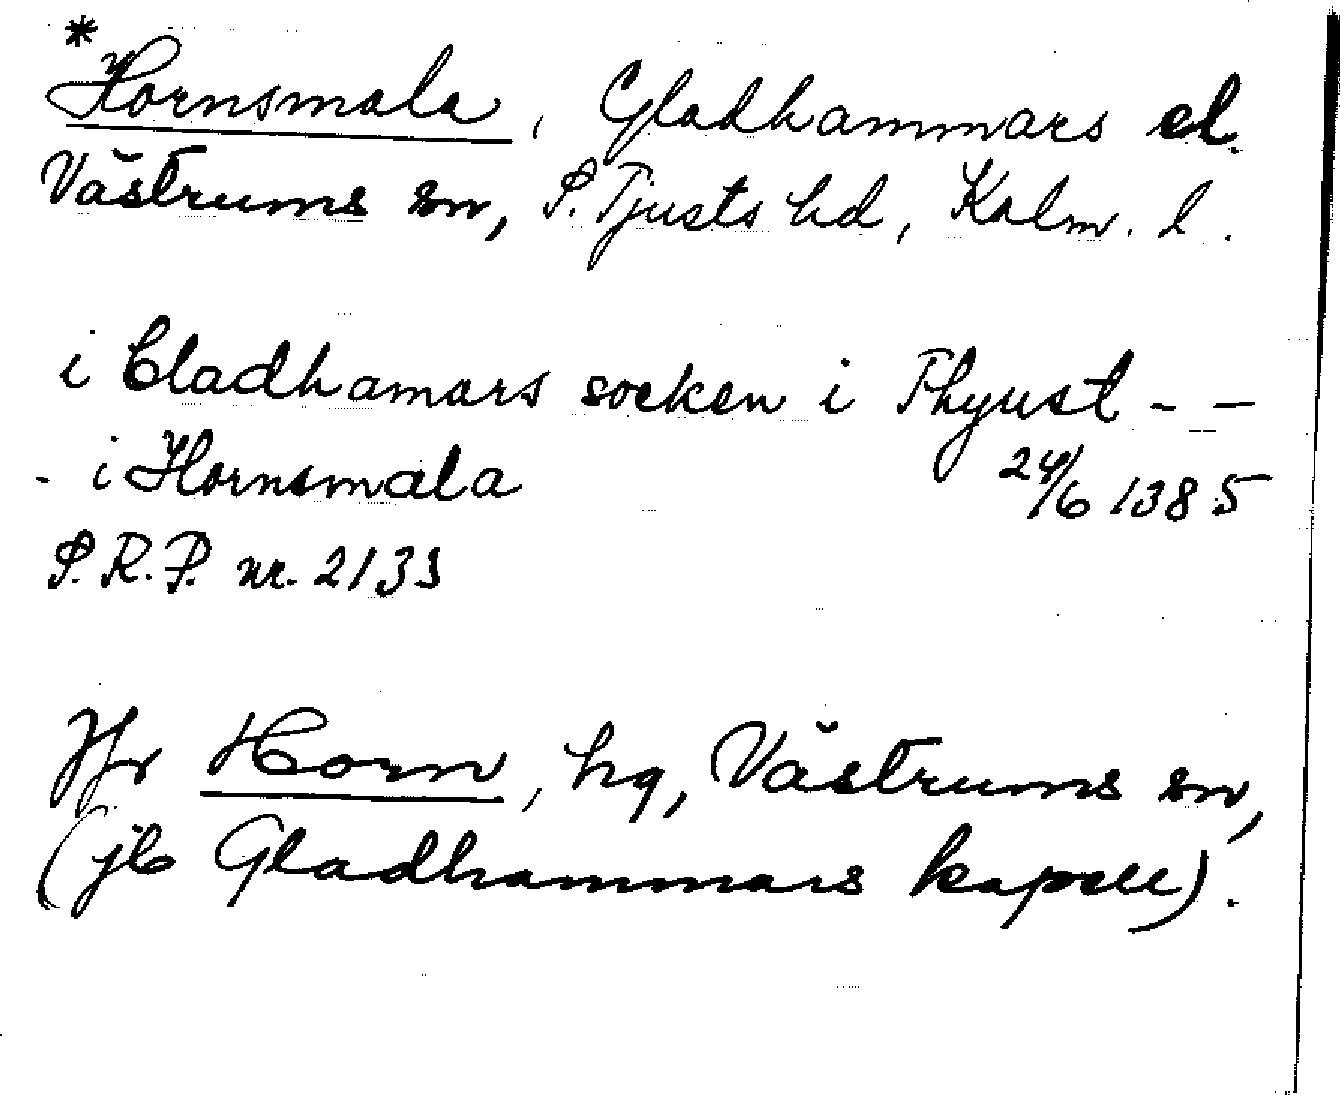 *
Hornsmala, Gladhammars el.
Västrums sn, S. Tjusts hd, Kalm. l.
i Gladhamars socken i Thyust - -
- i Hornsmala 24/6 1385
S.R.P. nr. 2133
Jfr Horn, hg, Västrums sn,
(jb Gladhammars kapell).